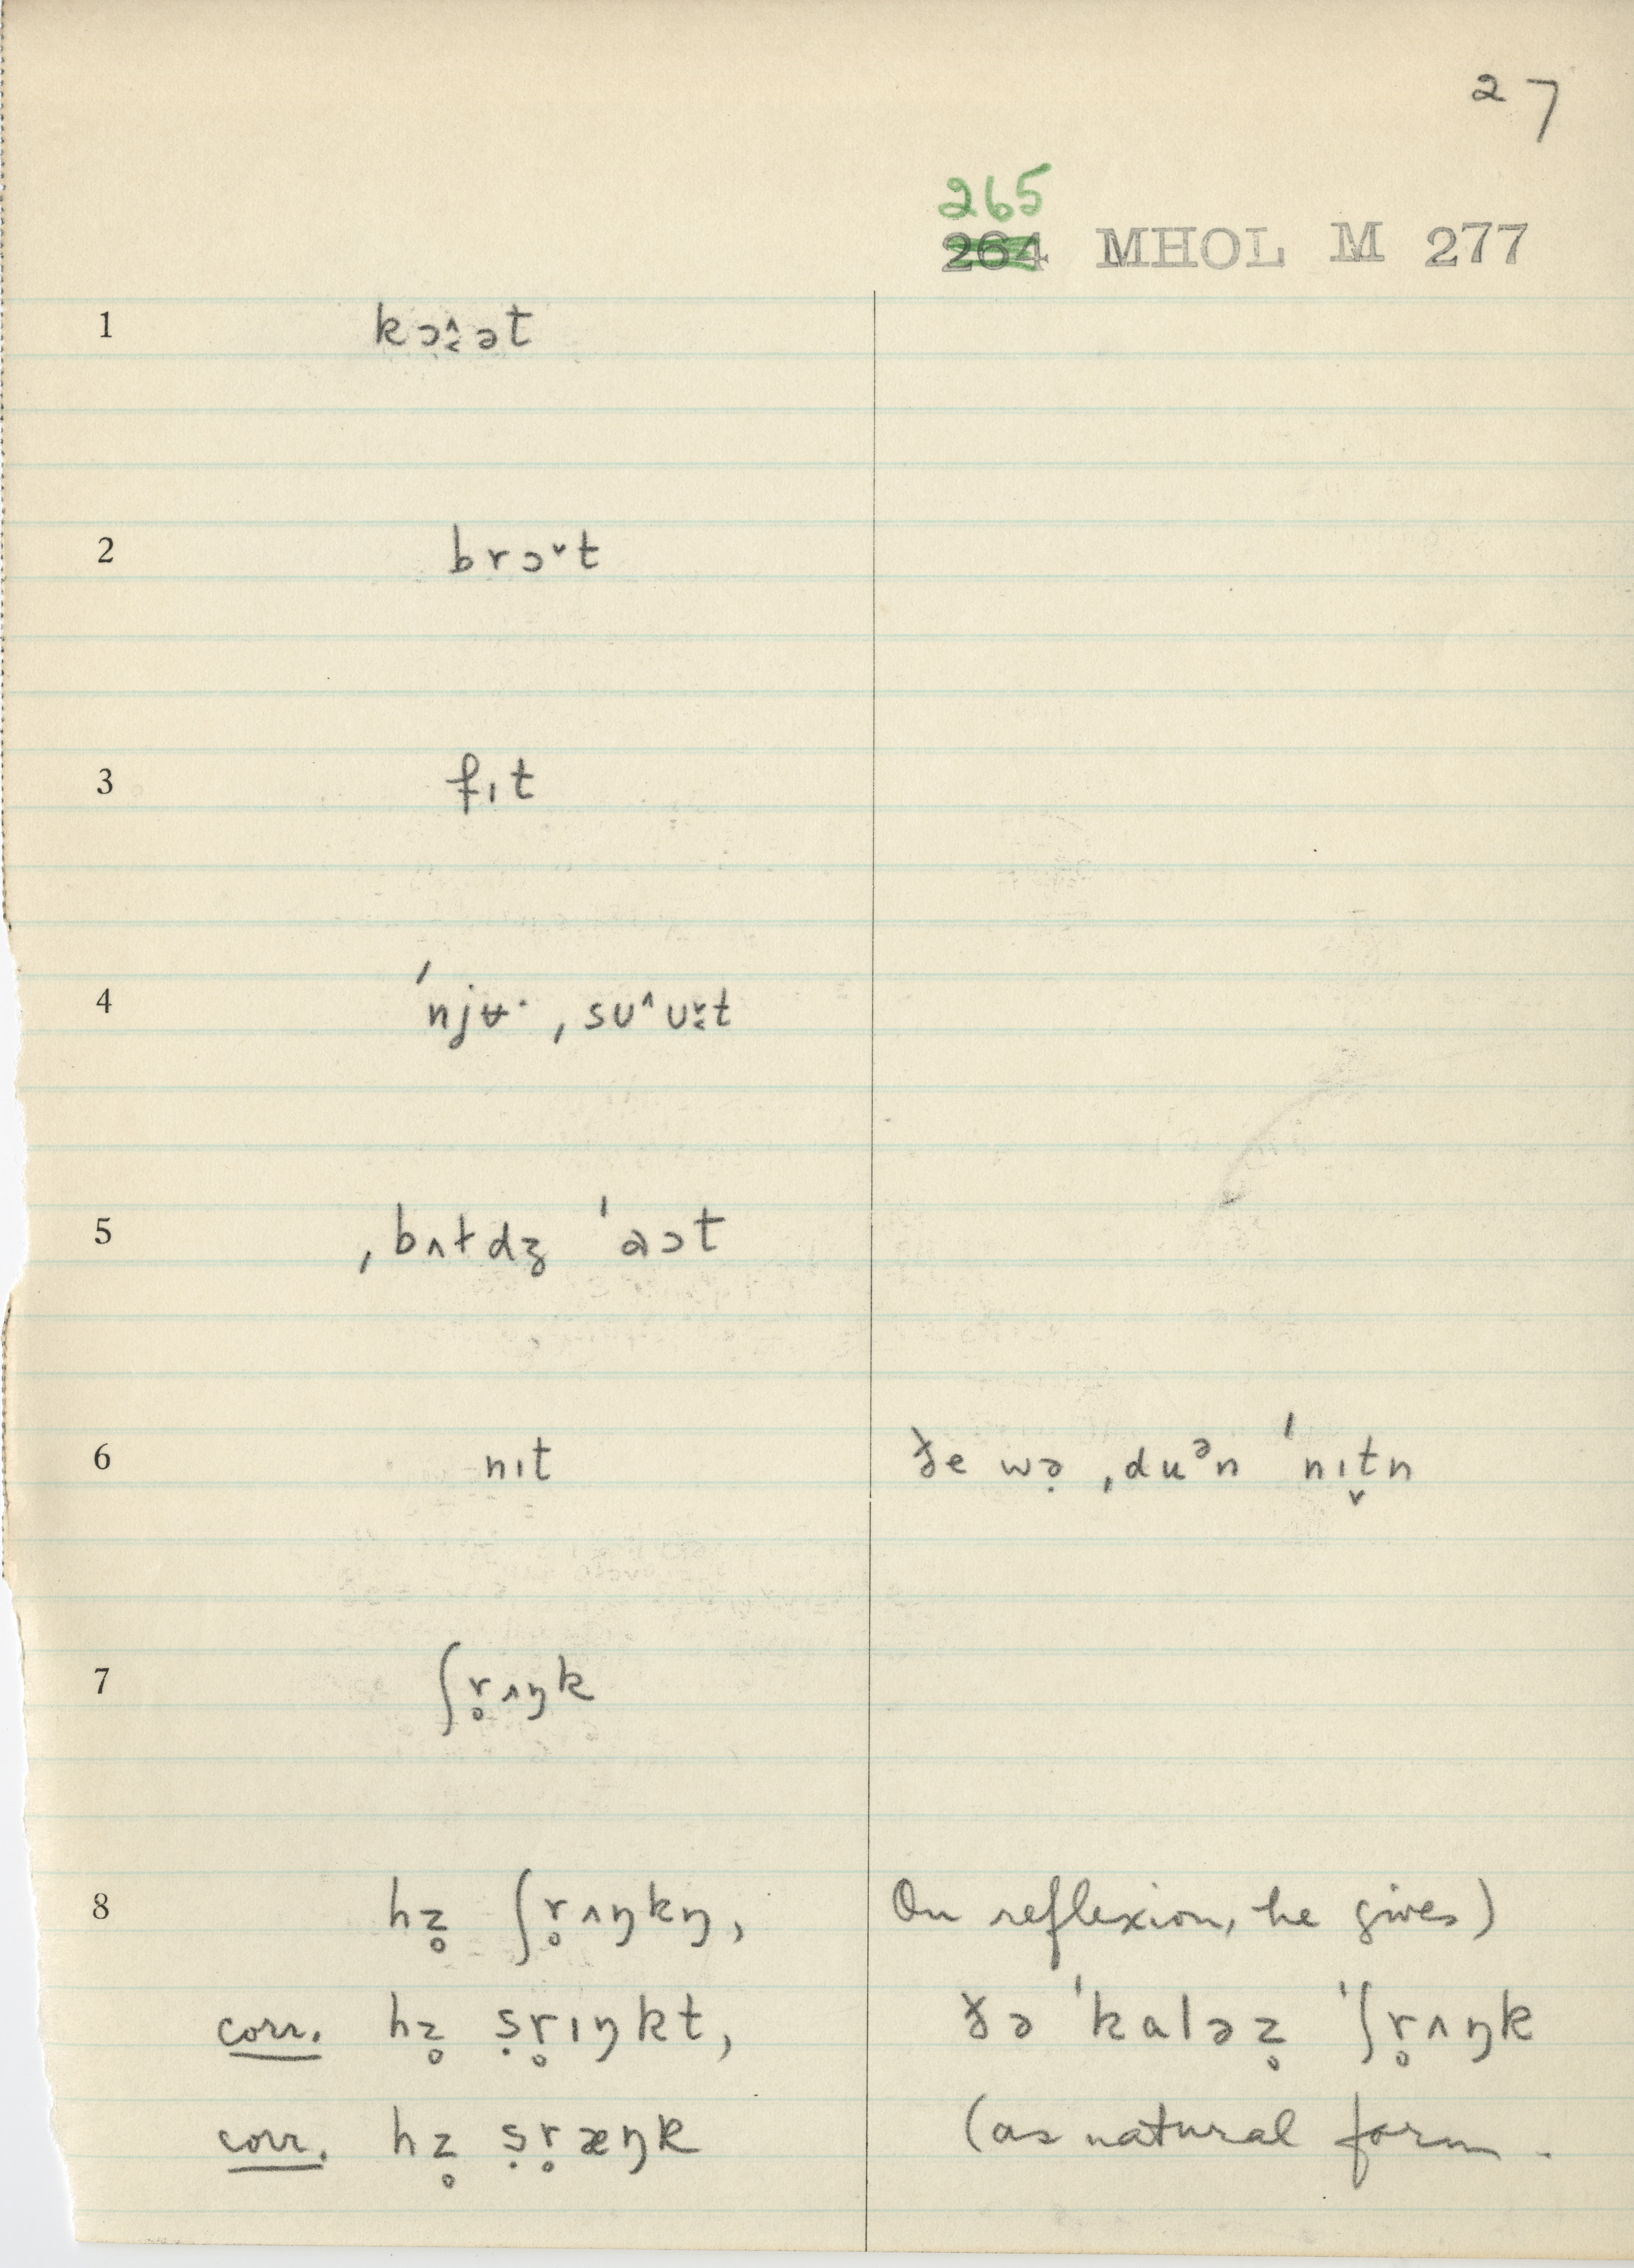 27
265
264 MHOL M 277
1 kɔ˄̬ət
2 brɔ˅t
3 fɪt
4 ˈnjʉ· ˌsʊ˄ʊ˅t
5 ˌbʌɫdʒ ˈaɔt
6 nɪt ðe wə̣ ˌduᵊn ˈnɪt̬n
7 ʃr̥ʌŋk
8 hz̥ ʃr̥ʌŋkŋ, On reflexion, he gives)
corr. hz̥ ṣr̥ɪŋkt, ðə ˈkaləz̥ ˈʃr̥ʌŋk
corr. hz̥ ṣr̥æŋk (as natural form.